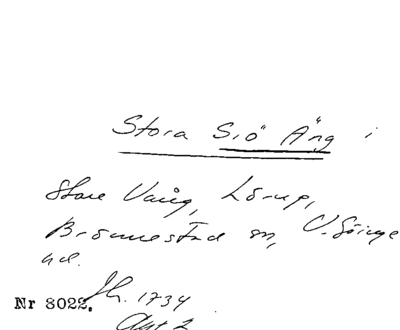 Stora Siö Äng i
Stora Vång, Lörup,
Brönnestad sn, V. Göinge
hd.
Nr 8022. Jb. 1734
Akt 2